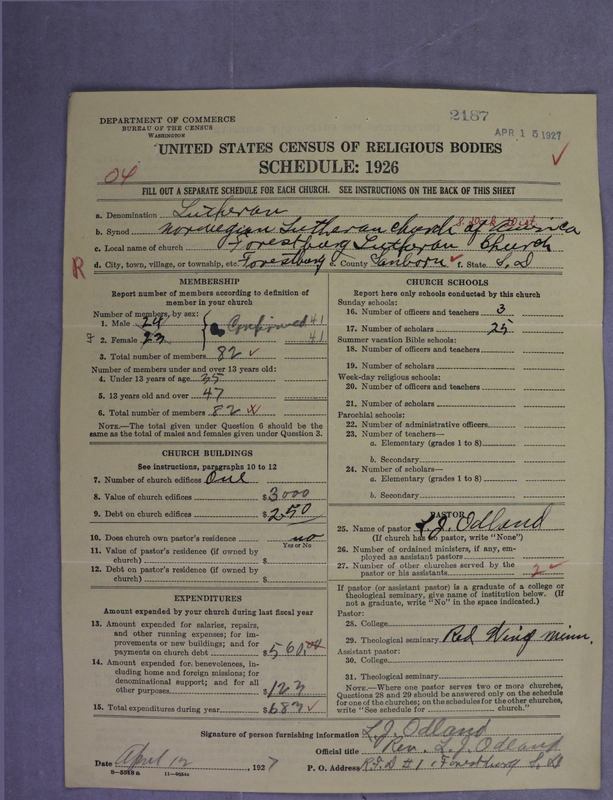 DEPARTMENT OF COMMERCE
BUREAU OF THE CENSUS
WASHINGTON
2187
APR 15 1927
UNITED STATES CENSUS OF RELIGIOUS BODIES
SCHEDULE: 1926
04
FILL OUT A SEPARATE SCHEDULE FOR EACH CHURCH. SEE INSTRUCTIONS ON THE BACK OF THIS SHEET
a. Denomination Lutheran
b. Synod Norwegian Lutheran Church of America
c. Local name of church Forestburg Lutheran Church
R
d. City, town, village, or township, etc. Forestburg e. County Sanborn f. State S.D
MEMBERSHIP
Report number of members according to definition of
member in your church
Number of members, by sex:
1. Male 24 Confirmed 41
2. Female 23 41
3. Total number of members 82
Number of members under and over 13 years old:
4. Under 13 years of age 35
5. 13 years old and over 47
6. Total number of members 82
NOTE.—The total given under Question 6 should be the
same as the total of males and females given under Question 3.
CHURCH BUILDINGS
See instructions, paragraphs 10 to 12
7. Number of church edifices One
8. Value of church edifices $3000
9. Debt on church edifices $250
10. Does church own pastor's residence no
Yes or No
11. Value of pastor's residence (if owned by
church) $
12. Debt on pastor's residence (if owned by
church) $
EXPENDITURES
Amount expended by your church during last fiscal year
13. Amount expended for salaries, repairs,
and other running expenses; for im-
provements or new buildings; and for
payments on church debt $560.00
14. Amount expended for benevolences, in-
cluding home and foreign missions; for
denominational support; and for all
other purposes $123
15. Total expenditures during year $683
CHURCH SCHOOLS
Report here only schools conducted by this church
Sunday schools:
16. Number of officers and teachers 3
17. Number of scholars 25
Summer vacation Bible schools:
18. Number of officers and teachers
19. Number of scholars
Week-day religious schools:
20. Number of officers and teachers
21. Number of scholars
Parochial schools:
22. Number of administrative officers
23. Number of teachers—
a. Elementary (grades 1 to 8)
b. Secondary
24. Number of scholars—
a. Elementary (grades 1 to 8)
b. Secondary
PASTOR
25. Name of pastor L.J. Odland
(If church has no pastor, write "None")
26. Number of ordained ministers, if any, em-
ployed as assistant pastors
27. Number of other churches served by the
pastor or his assistants 2
If pastor (or assistant pastor) is a graduate of a college or
theological seminary, give name of institution below. (If
not a graduate, write "No" in the space indicated.)
Pastor:
28. College
29. Theological seminary Red Wing Minn.
Assistant pastor:
30. College
31. Theological seminary
NOTE.—Where one pastor serves two or more churches,
Questions 28 and 29 should be answered only on the schedule
for one of the churches; on the schedules for the other churches,
write "See schedule for church."
Signature of person furnishing information L.J. Odland
Official title Rev. L.J. Odland
Date April 12, 1927 P. O. Address R.F.D #1 Forestburg S.D
8-5558a 11-9054a